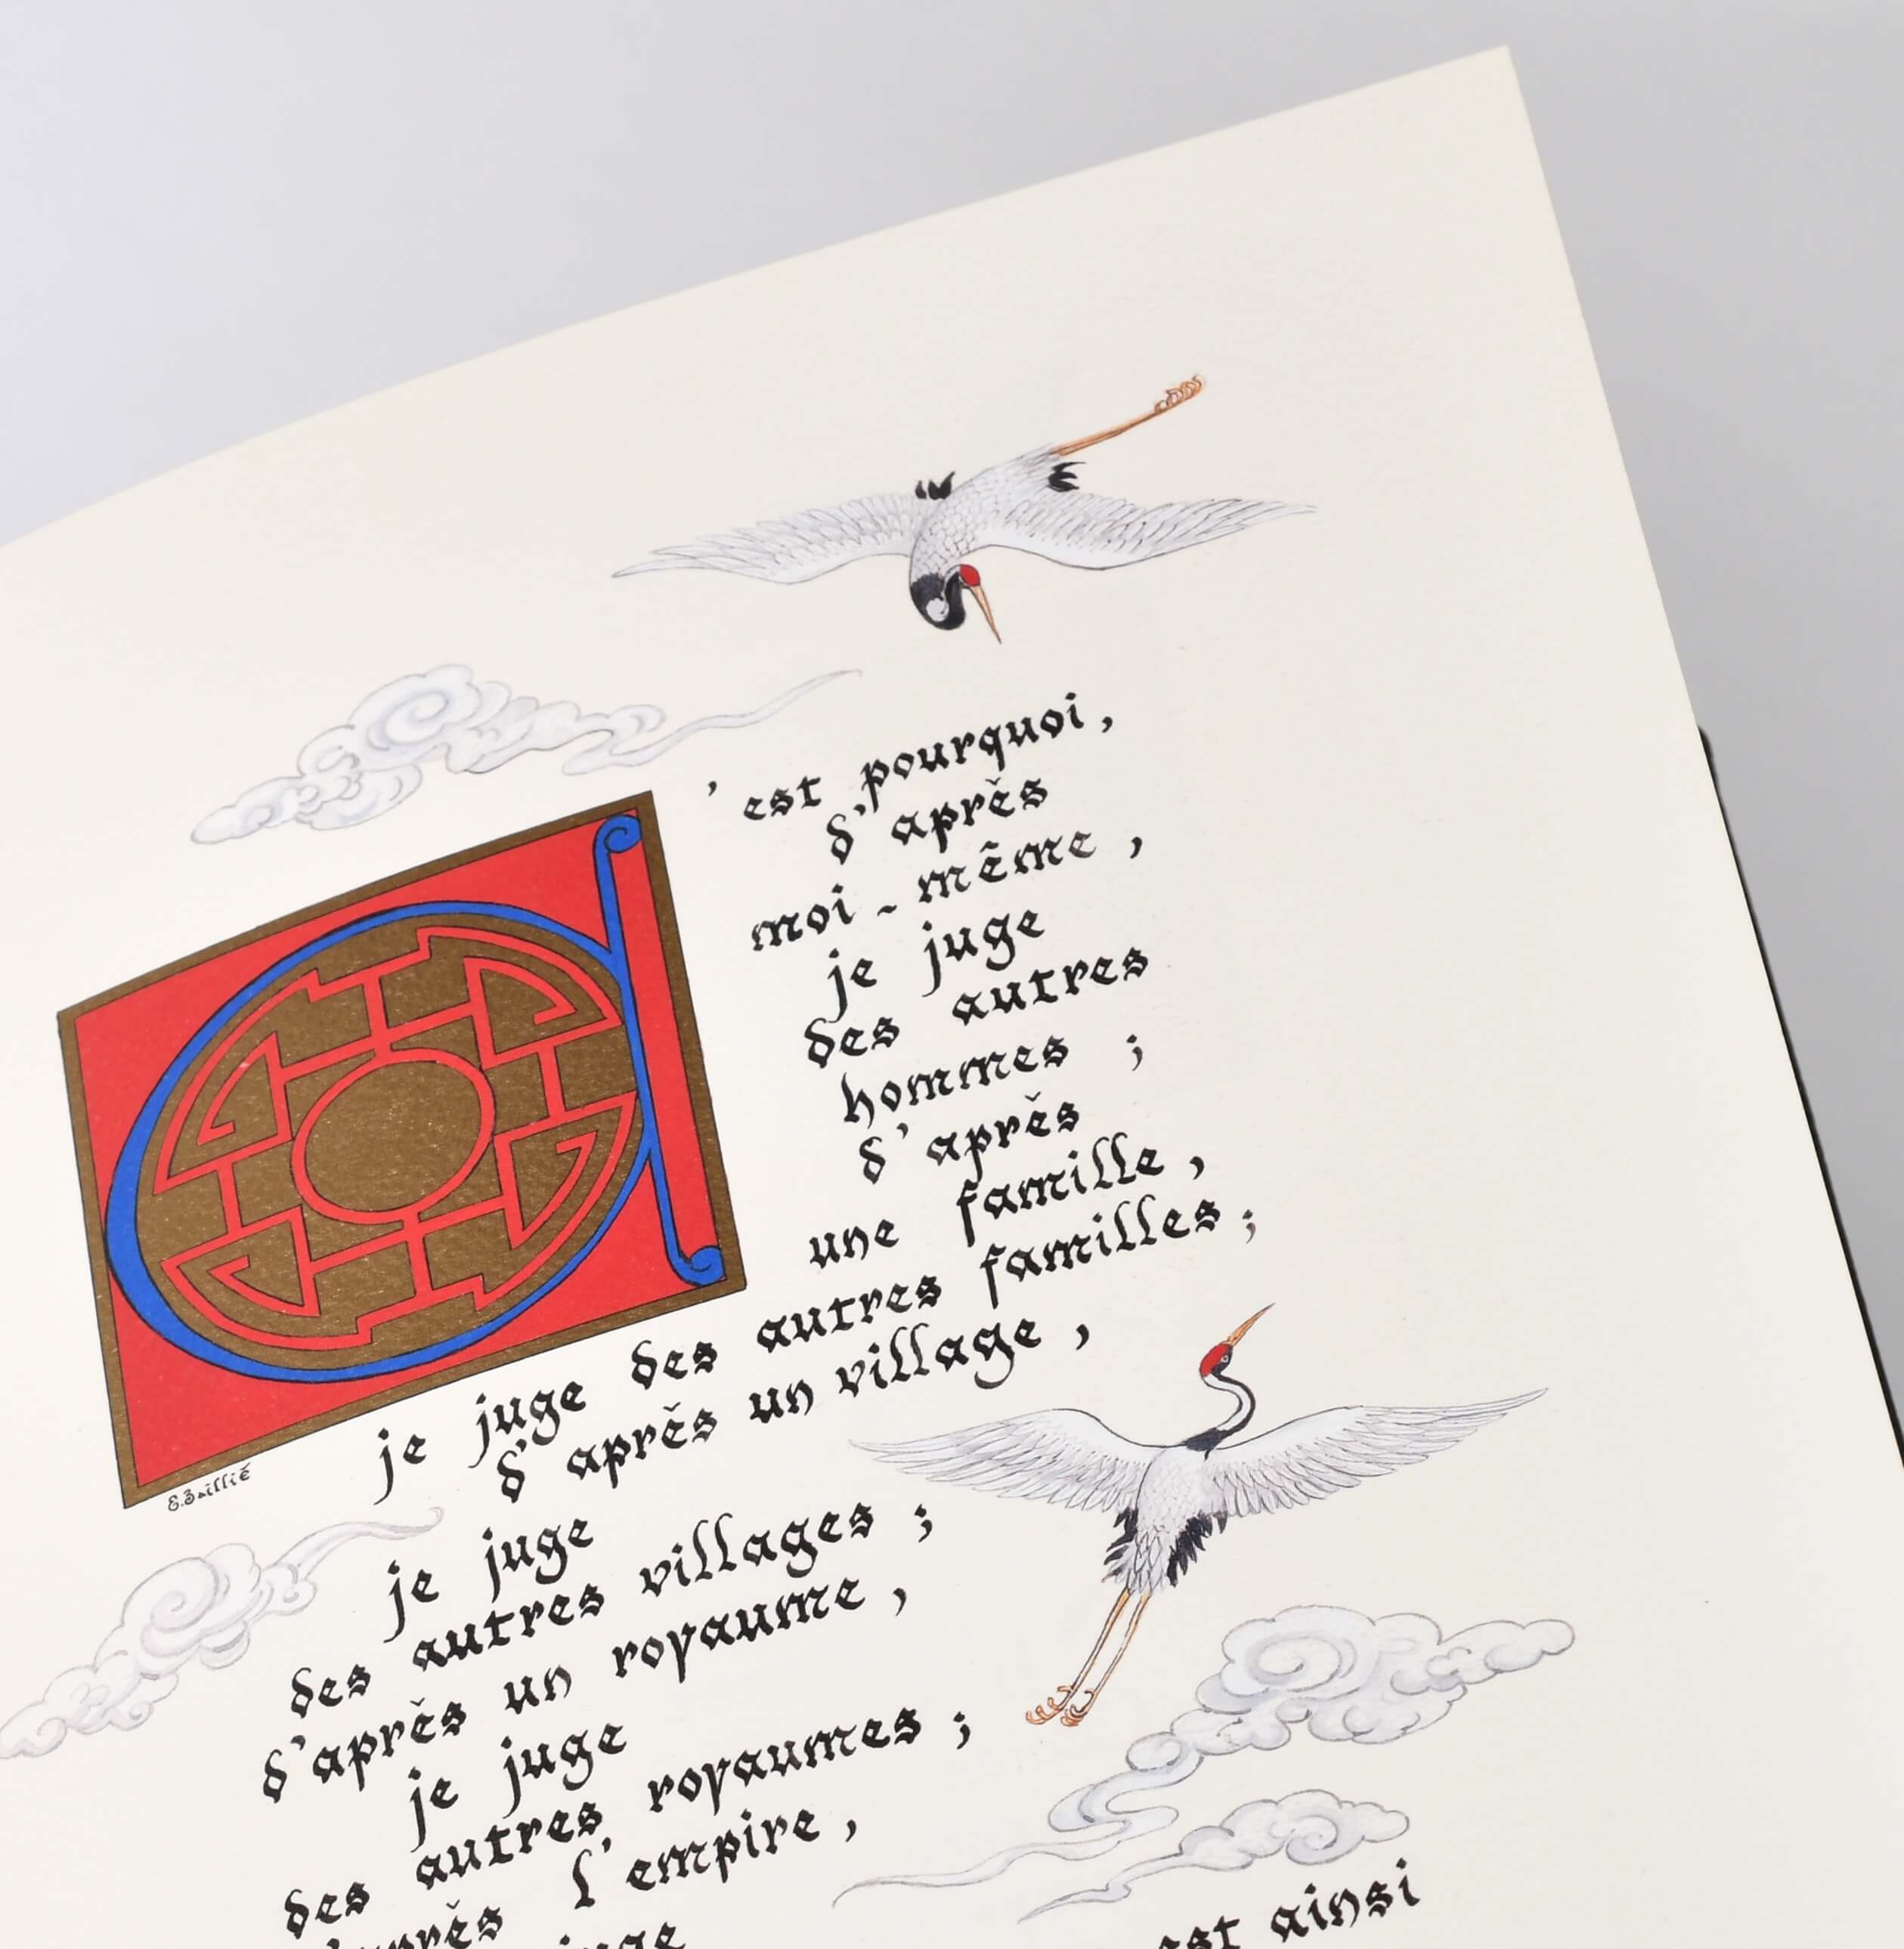 C'est pourquoi,
d'après
moi-même,
je juge
des autres
hommes ;
d'après
une famille,
je juge des autres familles ;
d'après un village,
je juge
des autres villages ;
d'après un royaume,
je juge
des autres royaumes ;
d'après l'empire,
juge
est ainsi
E. Baillié